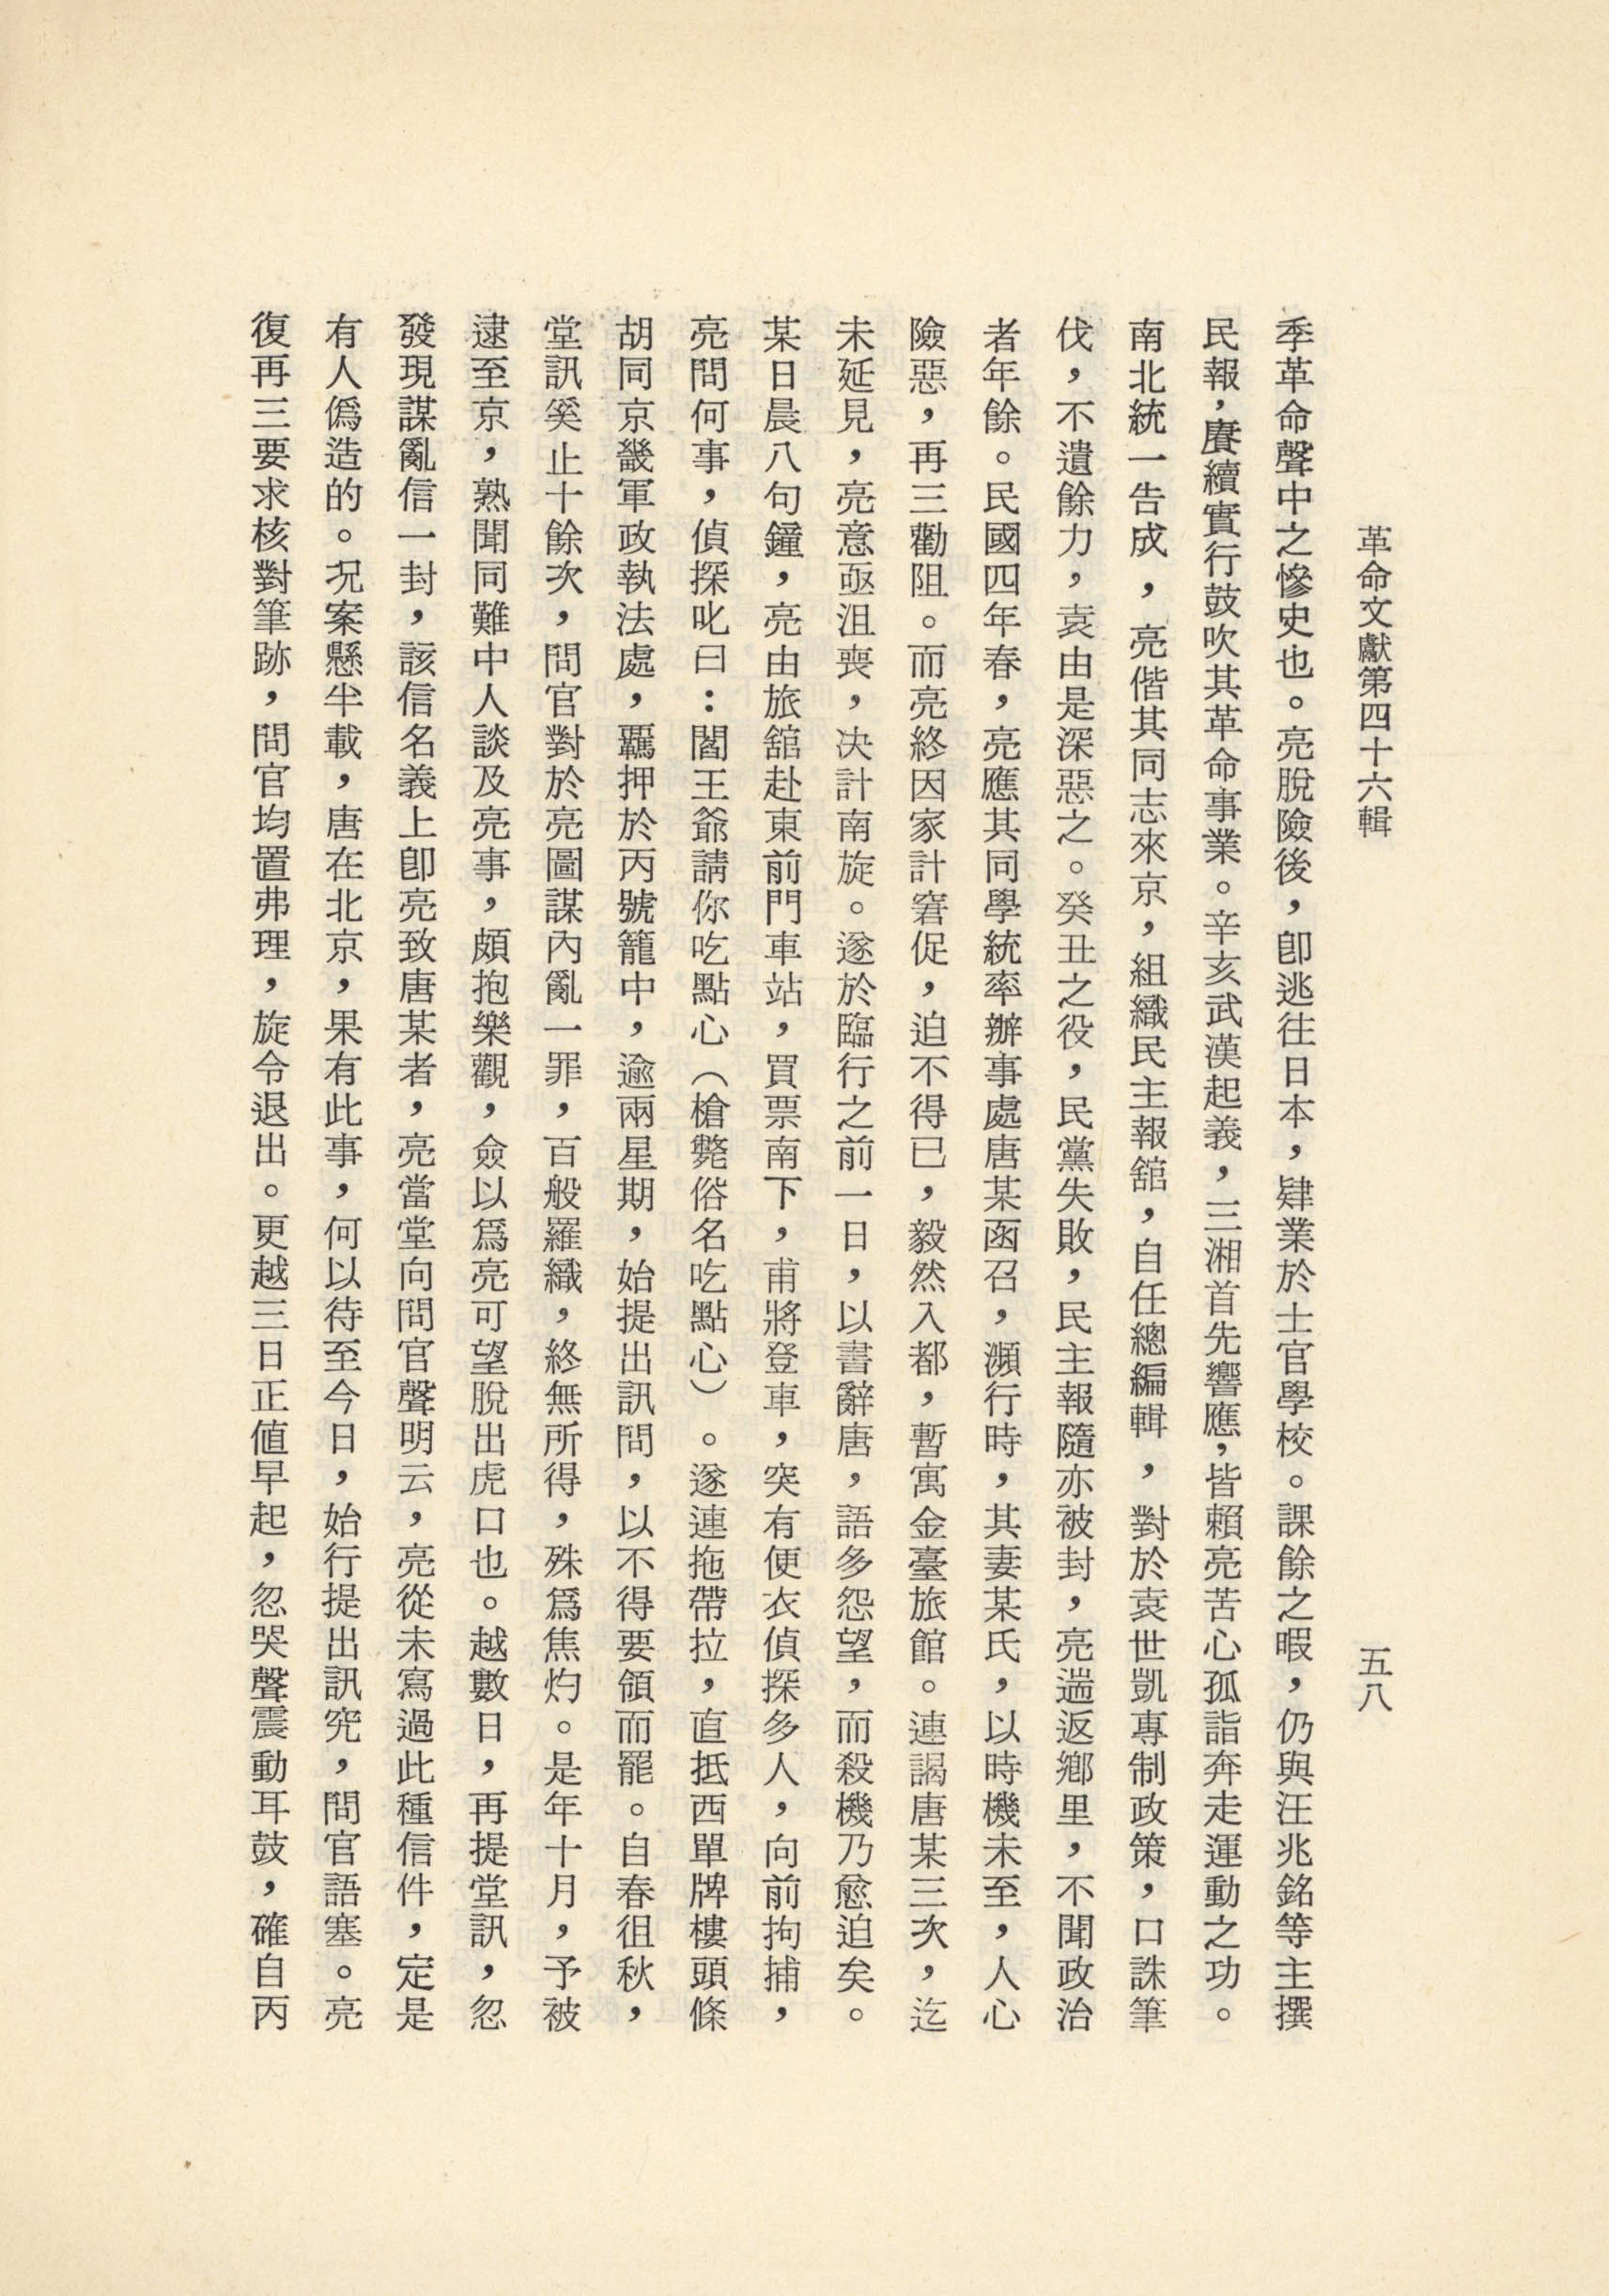 革命文獻第四十六輯
五八
季革命聲中之慘史也。亮脫險後，卽逃往日本，肄業於士官學校。課餘之暇，仍與汪兆銘等主撰
民報，賡續實行鼓吹其革命事業。辛亥武漢起義，三湘首先響應，皆賴亮苦心孤詣奔走運動之功。
南北統一告成，亮偕其同志來京，組織民主報舘，自任總編輯，對於袁世凱專制政策，口誅筆
伐，不遺餘力，袁由是深惡之。癸丑之役，民黨失敗，民主報隨亦被封，亮遄返鄉里，不聞政治
者年餘。民國四年春，亮應其同學統率辦事處唐某函召，瀕行時，其妻某氏，以時機未至，人心
險惡，再三勸阻。而亮終因家計窘促，迫不得已，毅然入都，暫寓金臺旅館。連謁唐某三次，迄
未延見，亮意亟沮喪，決計南旋。遂於臨行之前一日，以書辭唐，語多怨望，而殺機乃愈迫矣。
某日晨八句鐘，亮由旅舘赴東前門車站，買票南下，甫將登車，突有便衣偵探多人，向前拘捕，
亮問何事，偵探叱曰：閻王爺請你吃點心（槍斃俗名吃點心）。遂連拖帶拉，直抵西單牌樓頭條
胡同京畿軍政執法處，羈押於丙號籠中，逾兩星期，始提出訊問，以不得要領而罷。自春徂秋，
堂訊奚止十餘次，問官對於亮圖謀內亂一罪，百般羅織，終無所得，殊爲焦灼。是年十月，予被
逮至京，熟聞同難中人談及亮事，頗抱樂觀，僉以爲亮可望脫出虎口也。越數日，再提堂訊，忽
發現謀亂信一封，該信名義上卽亮致唐某者，亮當堂向問官聲明云，亮從未寫過此種信件，定是
有人僞造的。況案懸半載，唐在北京，果有此事，何以待至今日，始行提出訊究，問官語塞。亮
復再三要求核對筆跡，問官均置弗理，旋令退出。更越三日正值早起，忽哭聲震動耳鼓，確自丙